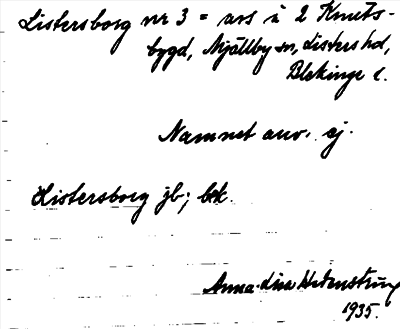 Listersborg nr 3 = avs i 2 Krnets-
bygd, Mjällby sn, Listers hd,
Blekinge l.
Namnet anv. ej.
Listersborg jb; bek.
Anna-Lisa
1935.